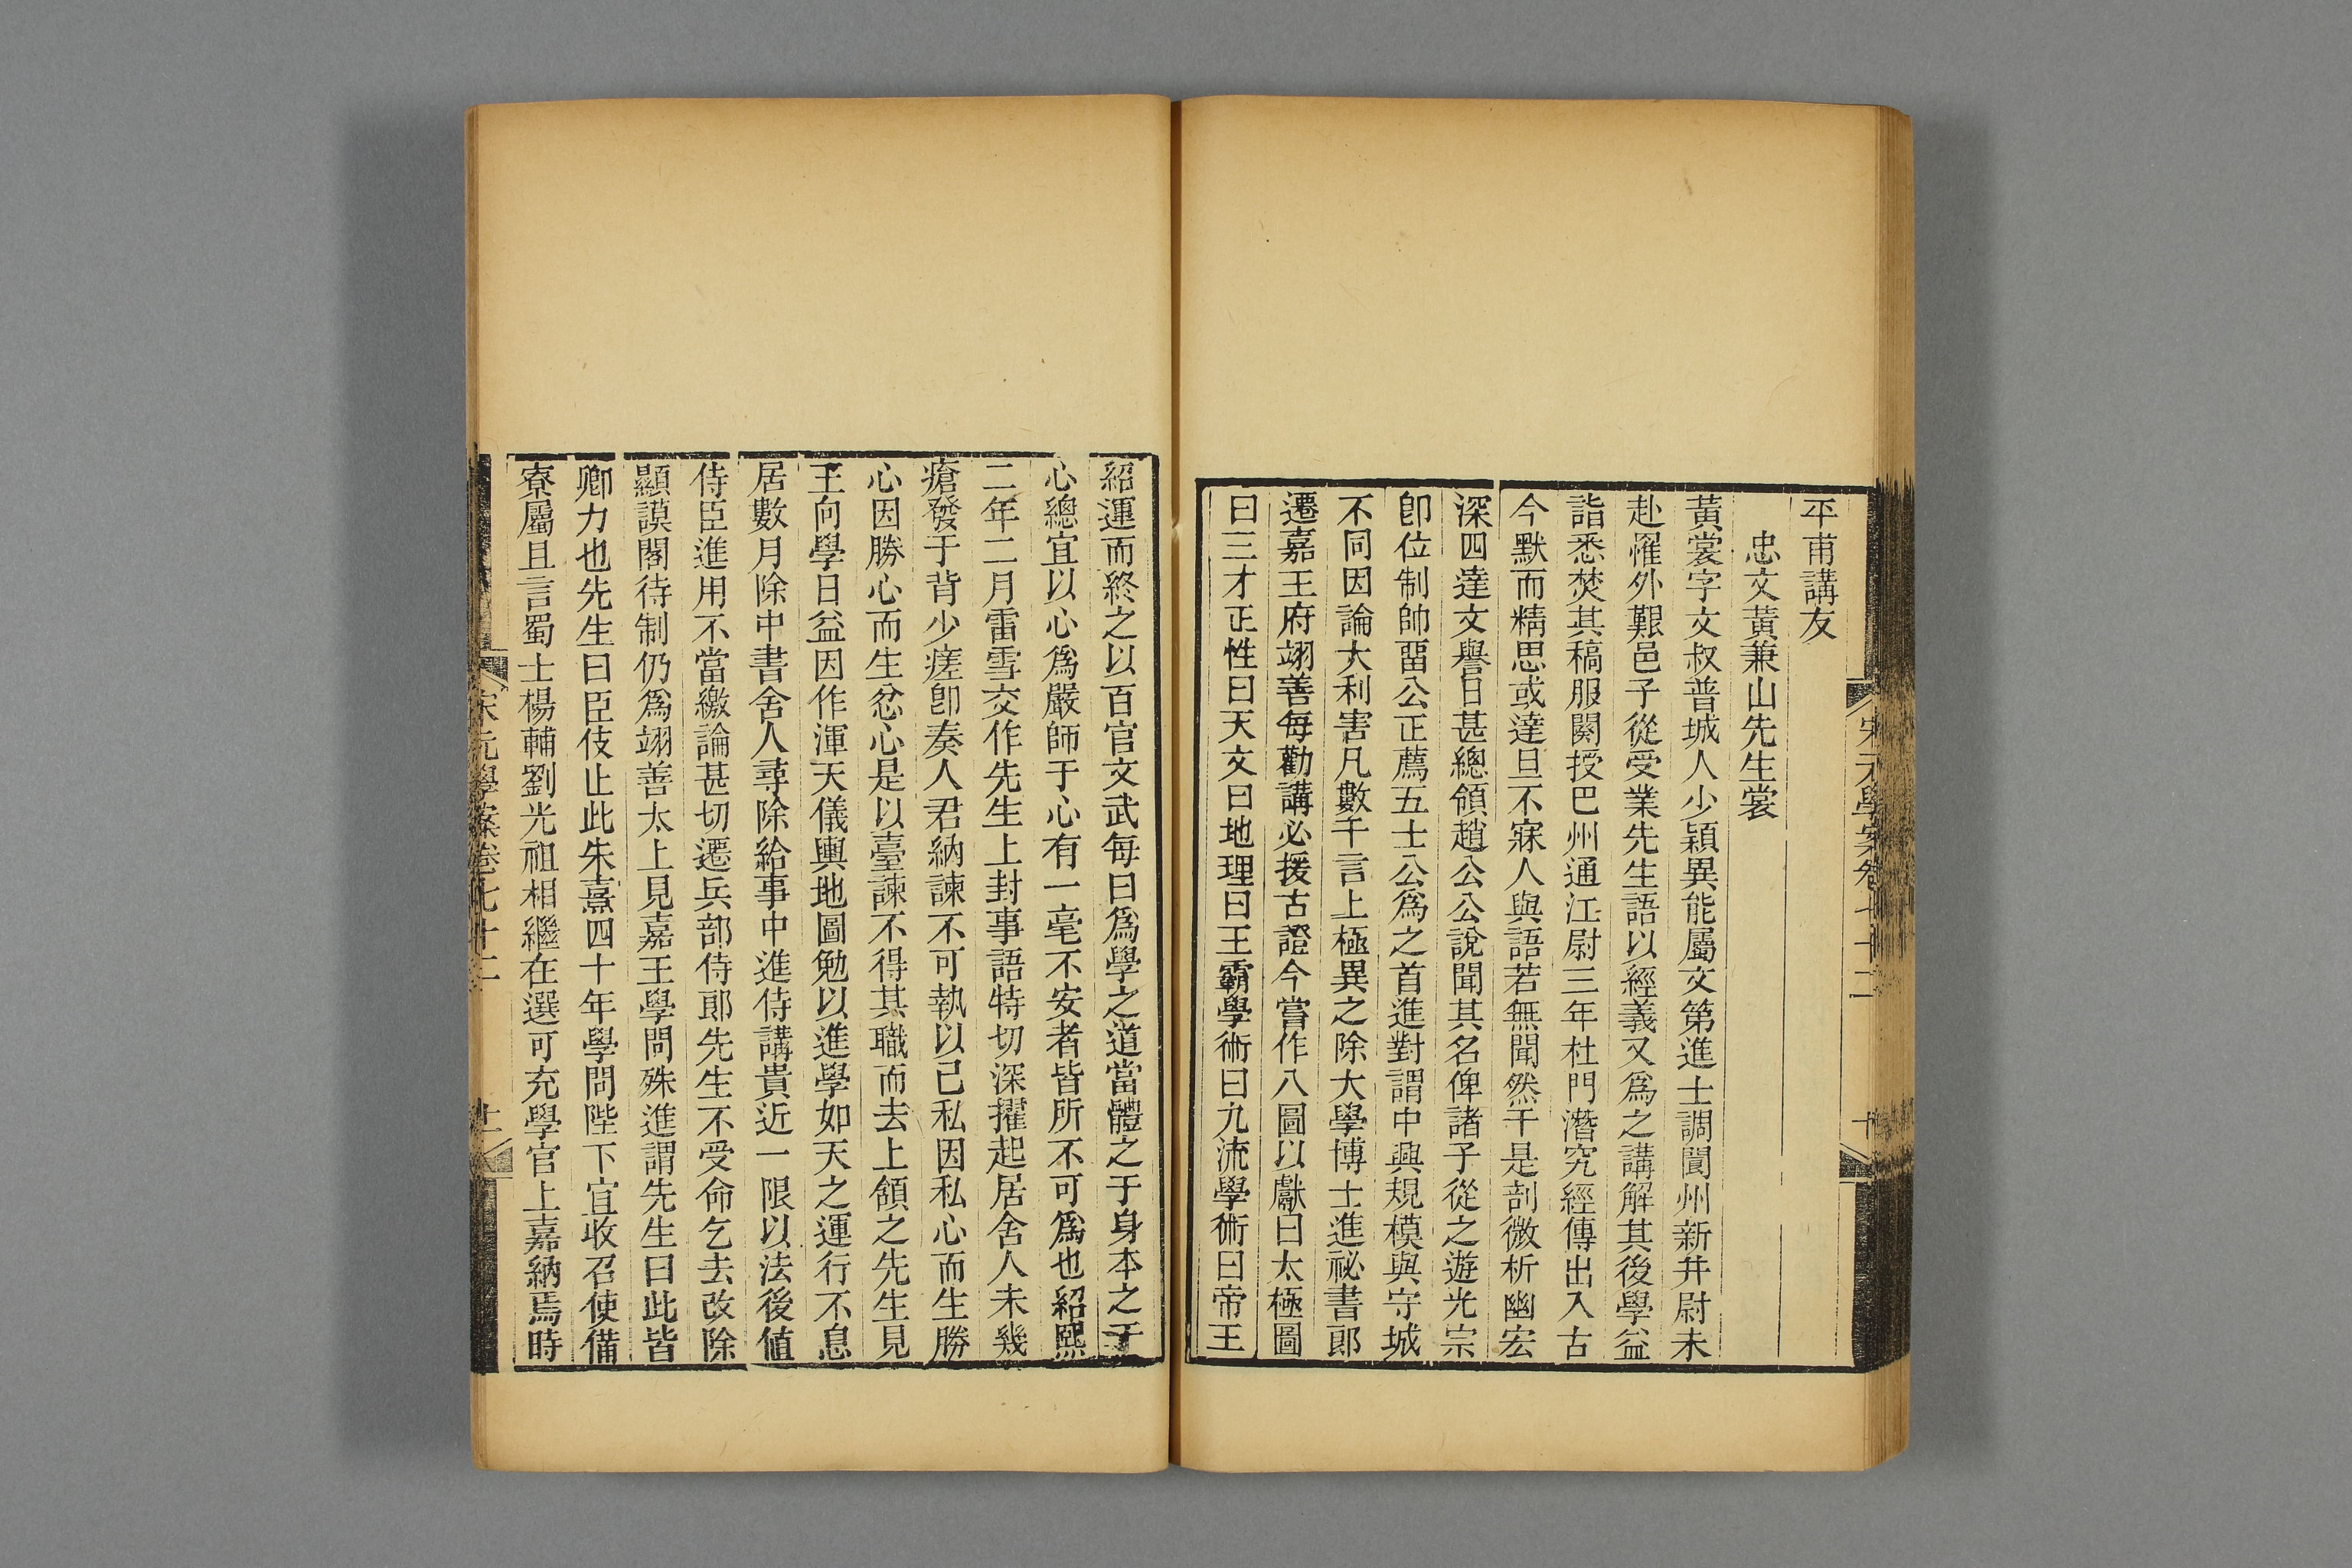 平甫講友
忠文黃兼山先生裳
黃裳字文叔普城人少穎異能屬文第進士調閬州新井尉未
赴罹外艱邑子從受業先生語以經義又爲之講解其後學益
詣悉焚其稿服闋授巴州通江尉三年杜門潛究經傳出入古
今默而精思或達旦不寐人與語若無聞然于是剖微析幽宏
深四達文譽日甚總領趙公公說聞其名俾諸子從之遊光宗
卽位制帥畱公正薦五士公爲之首進對謂中興規模與守城
不同因論大利害凡數千言上極異之除大學博士進祕書郎
遷嘉王府翊善每勸講必援古證今嘗作八圖以獻曰太極圖
曰三才正性曰天文曰地理曰王霸學術曰九流學術曰帝王
紹運而終之以百官文武每曰爲學之道當體之于身本之于
心總宜以心爲嚴師于心有一毫不安者皆所不可爲也紹熙
二年二月雷雪交作先生上封事語特切深擢起居舍人未幾
瘡發于背少瘥卽奏人君納諫不可執以己私因私心而生勝
心因勝心而生忿心是以臺諫不得其職而去上頷之先生見
王向學日益因作渾天儀輿地圖勉以進學如天之運行不息
居數月除中書舍人尋除給事中進侍講貴近一限以法後値
侍臣進用不當繳論甚切遷兵部侍郎先生不受命乞去改除
顯謨閣待制仍爲翊善太上見嘉王學問殊進謂先生曰此皆
卿力也先生曰臣伎止此朱熹四十年學問陛下宜收召使備
寮屬且言蜀士楊輔劉光祖相繼在選可充學官上嘉納焉時
宋元學案卷七十二
十一